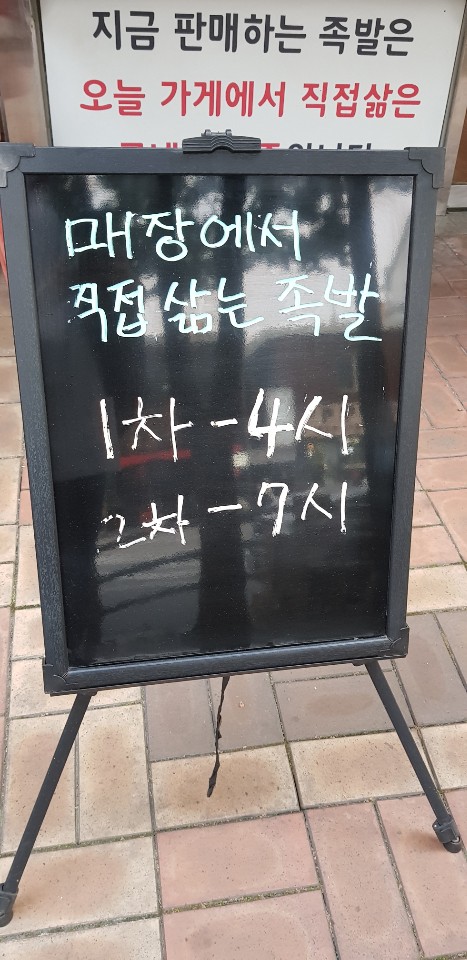 지금 판매하는 족발은
오늘 가게에서 직접삶은
매장에서
직접 삶는 족발
1차 - 4시
2차 - 7시